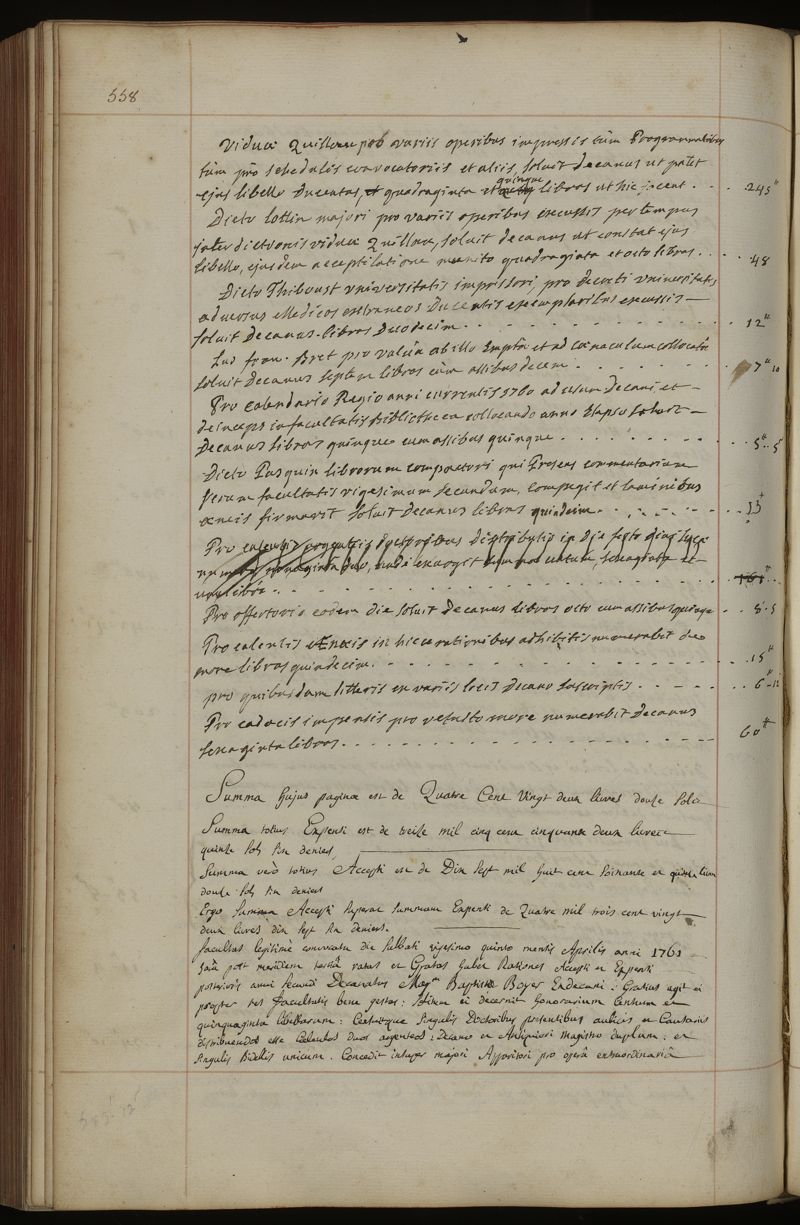 558
Viduæ Quillau pob variis operibus impressis tùm Programmatibus
tùm pro schedulis convocatoriis et aliis, soluit Decanus ut patet
ejus libello Ducentas, et quadraginta et quinque libras ut hic jacent. . . . 245tt
Dicto lottin majori pro variis operibus excussis per tempus
viduæ Quillau, soluit decanus ut constat ejus
libello, ejusdem acceptilatione munito quadraginta et octo libras. . . . 48
Dicto Thiboust universitatis impressori pro decreti universitatis
adversus Medicos extraneos Ducentis exemplaribus excussis —
soluit Decanus. libras Duodecim. . . . 12tt
Lud fran. Bret pro ab illo Emptâ et ad cœnaculum collocatâ
soluit Decanus septem libras cùm assibus decem. . . . 7tt 10
Pro calendario Regio anni currentis 1760 ad usum decani et —
deinceps in facultatis Bibliotheca collocando anno Elapso soluit —
Decanus libras quinque cum assibus quinque . . . 5tt..5
Dicto Pasquin librorum compactori qui Proseus commentarium
rerum facultatis vigesimum secundum, compegit et laminibus
æneis firmavit soluit Decanus libras quindecim. . . . 15tt
Pro Doctoribus Distributis in Die festo divi Lucæ
et
. . . 161tt
Pro offertorio eodem die soluit Decanus libras octo cum assibus quinque . . 8.5
Pro calculis Æneis in hicce rationibus adhibitis numerabit de
more libras quindecim. . . . 15tt
pro quibusdam litteris ex variis locis Decano suscriptis . . . 6tt..12
Pro caducis impensis pro vetusto more numerabit Decanus
sexaginta libras . . . 60tt
Summa hujus paginæ est de Quatre Cent Vingt deux livres douze sols
Summa totius Expensi est de treize mil cinq cens cinquante deux livres
quinze sols six deniers
Summa verò totius Accepti est de Dix sept mil huit cens soixante et quinze livres
douze sols six deniers
Ergo Summa Accepti superat summam Expensi de Quatre mil trois cent vingt
deux livres dix sept six deniers.
facultas legitimè convocata die sabbati vigesimo quinto mensis Aprilis anni 1761
horâ post meridiem tertiâ ratas et Gratas habet Rationes Accepti et Expensi
posterioris anni secundi Decanatus Magri Baptistæ Boyer Exdecani: Gratias agit ei
propter res facultatis bene gestas: solitum ei decernit honorarium Centum et
quinquaginta libellarum: Censuitque singulis Doctoribus præsentibus aulicis et Causariis
distribuendos esse Calculos duos argenteos: Decano et Antiquiori magistro duplum: et
singulis Bidellis unicum. Concedit insuper majori Apparitori pro operâ extraordinariâ